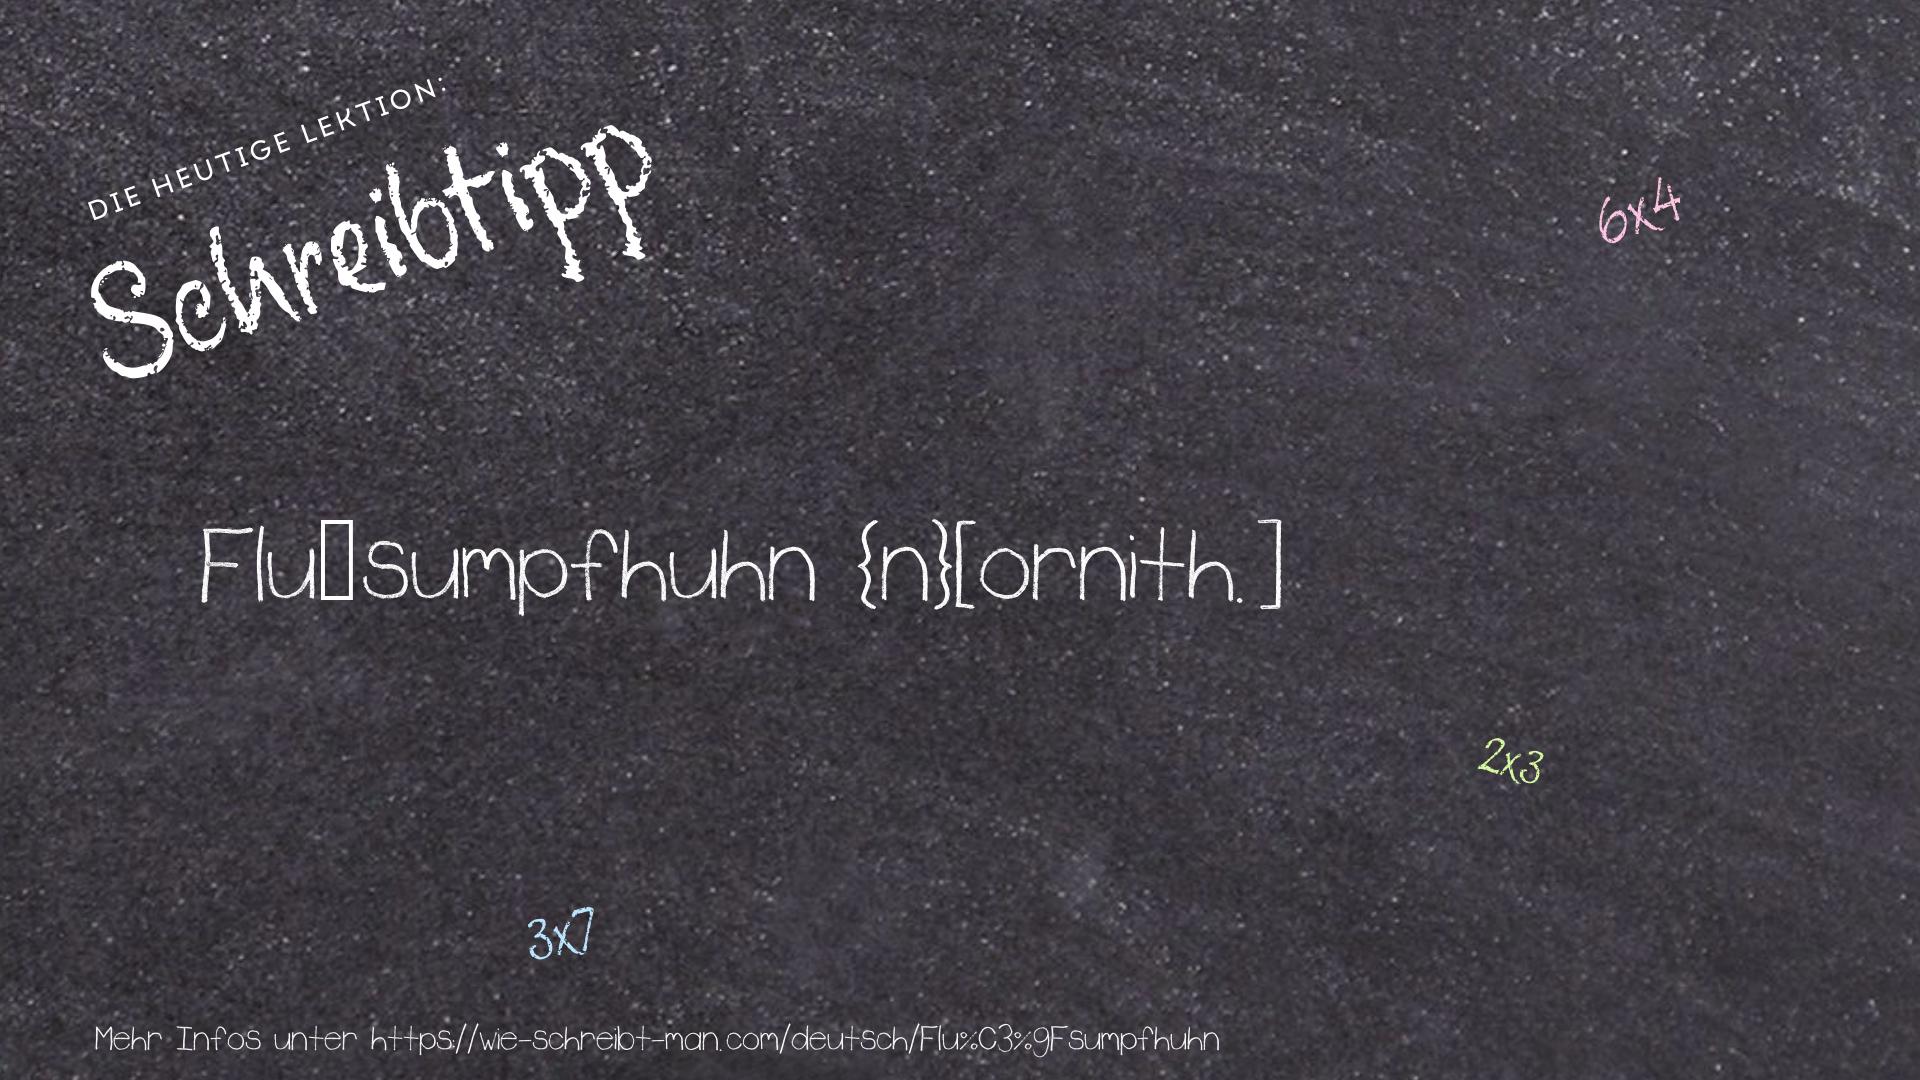 DIE HEUTIGE LEKTION:
Schreibtipp
6x4
Flu▯sumpfhuhn {n}[ornith.]
2x3
3x7
Mehr Infos unter https://wie-schreibt-man.com/deutsch/Flu%C3%9Fsumpfhuhn